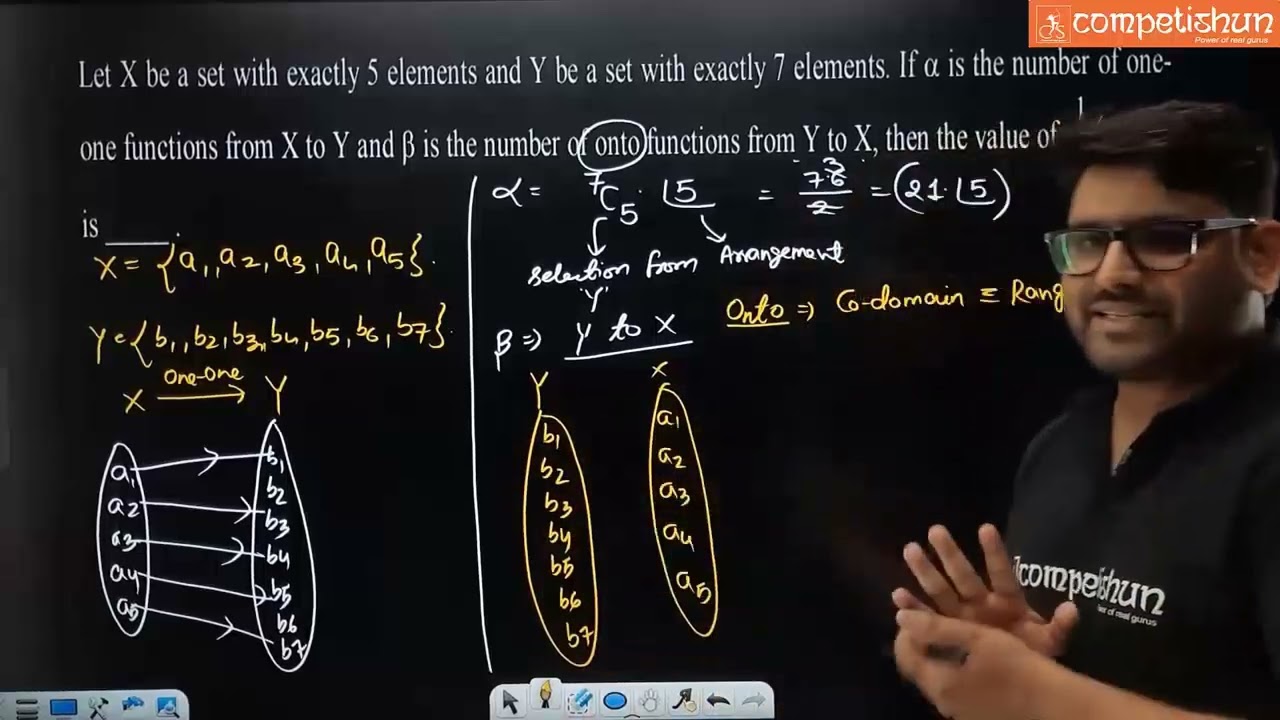 competishun
Power of real gurus
Let X be a set with exactly 5 elements and Y be a set with exactly 7 elements. If α is the number of one-
one functions from X to Y and β is the number of onto functions from Y to X, then the value of
is _____.
X = {a1, a2, a3, a4, a5}.
Y = {b1, b2, b3, b4, b5, b6, b7}.
X One-One Y
a1
a2
a3
a4
a5
b1
b2
b3
b4
b5
b6
b7
α = ⁷C₅ · ⌊5 = 7·6 3 / 2 = (21·⌊5)
Selection from "Y"
Arrangement
β => Y to X
Onto => Co-domain ≡ Rang
Y
b1
b2
b3
b4
b5
b6
b7
X
a1
a2
a3
a4
a5
competishun
er of real gurus